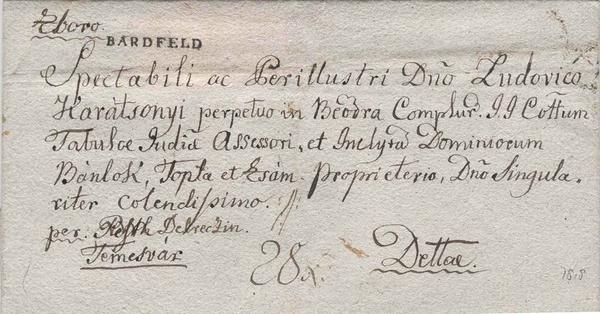 Zboro.
BARDFELD
Spectabili ac Perillustri Dño Ludovico
Karátsonyi perpetuo in Beodra Complur. I.I Cottuum
Tabulae Iudiae Assessori, et Inclytor Dominiorum
Bánlok, Topla et Zsám. Proprietario, Dño Singula-
riter Colendissimo.
per. Pesth Debreczin.
Temesvár
28x. Dettae.
1818